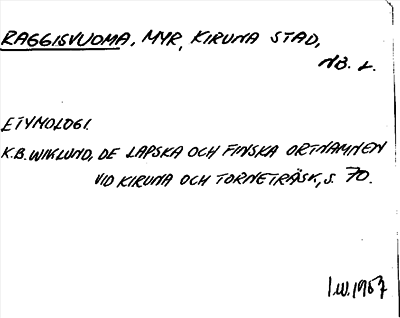 RAGGISVUOMA, MYR, KIRUNA STAD,
NB. L.
ETYMOLOGI.
K.B. WIKLUND, DE LAPSKA OCH FINSKA ORTNAMNEN
VID KIRUNA OCH TORNETRÄSK, S. 70.
I.W. 1967